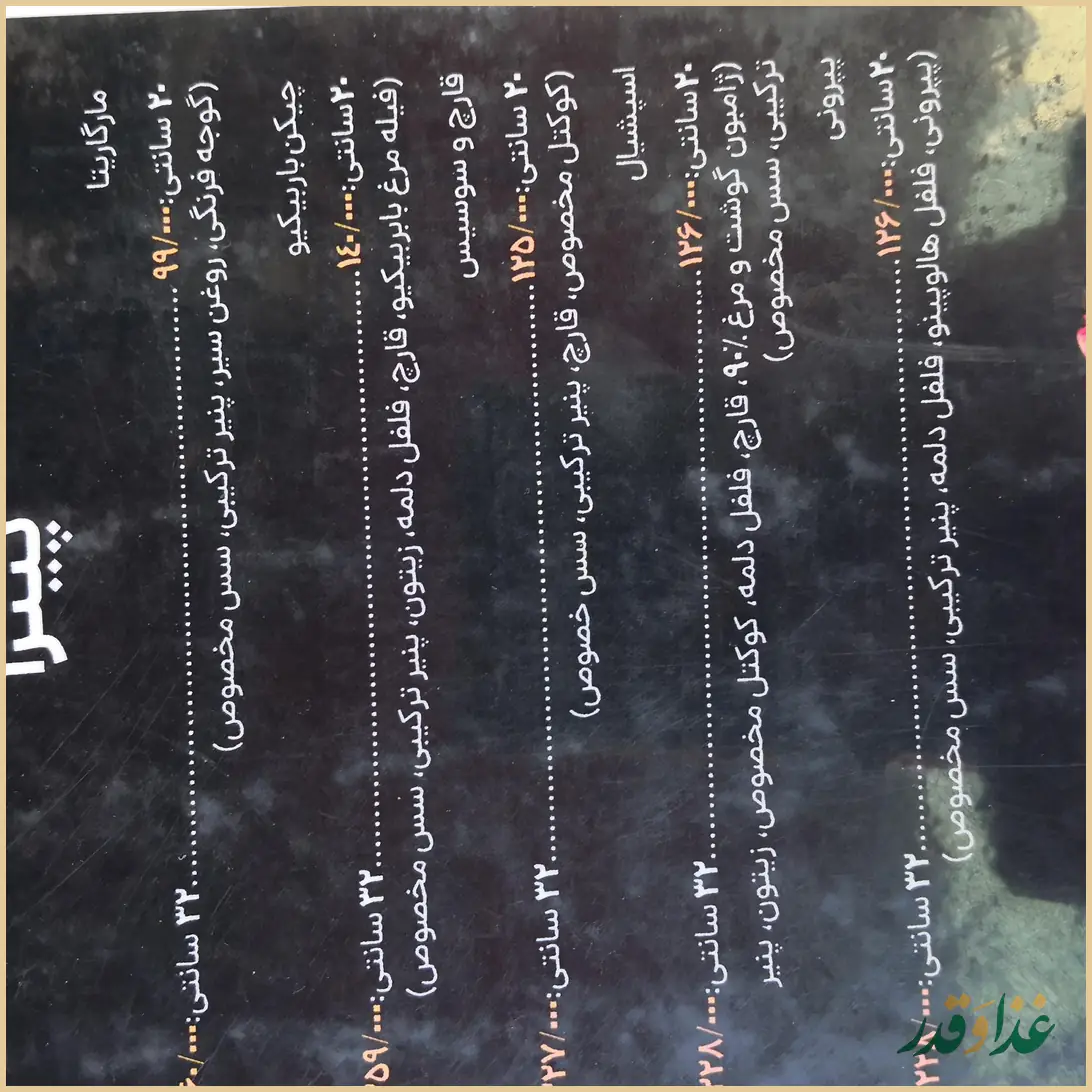 پیتزا
مارگاریتا
۲۰ سانتی:۹۹/۰۰۰ ........ ۳۲ سانتی:
(گوجه فرنگی، روغن سیر، پنیر ترکیبی، سس مخصوص)
چیکن باربیکیو
۲۰ سانتی:۱۴۰/۰۰۰ ........ ۳۲ سانتی:۵۹/۰۰۰
(فیله مرغ باربیکیو، قارچ، فلفل دلمه، زیتون، پنیر ترکیبی، سس مخصوص)
قارچ و سوسیس
۲۰ سانتی:۱۲۵/۰۰۰ ........ ۳۲ سانتی:۲۷/۰۰۰
(کوکتل مخصوص، قارچ، پنیر ترکیبی، سس خصوص)
اسپشیال
۲۰ سانتی:۱۲۶/۰۰۰ ........ ۳۲ سانتی:۲۲۸/۰۰۰
(ژامبون گوشت و مرغ ۹۰٪، قارچ، فلفل دلمه، کوکتل مخصوص، زیتون، پنیر
ترکیبی، سس مخصوص)
پپرونی
۲۰ سانتی:۱۲۶/۰۰۰ ........ ۳۲ سانتی:
(پپرونی، فلفل هالوپینو، فلفل دلمه، پنیر ترکیبی، سس مخصوص)
غذا و قدر